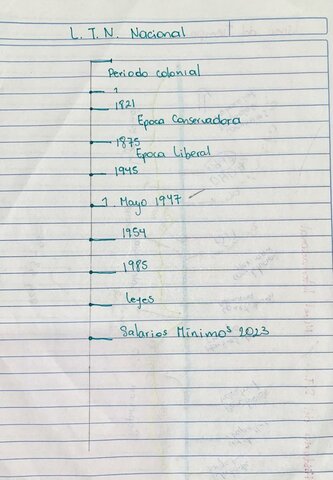 L. T. N. Nacional
Periodo colonial
1
1821
Epoca Conservadora
1875
Epoca Liberal
1945
1. Mayo 1947
1954
1985
Leyes
Salarios Mínimos 2023